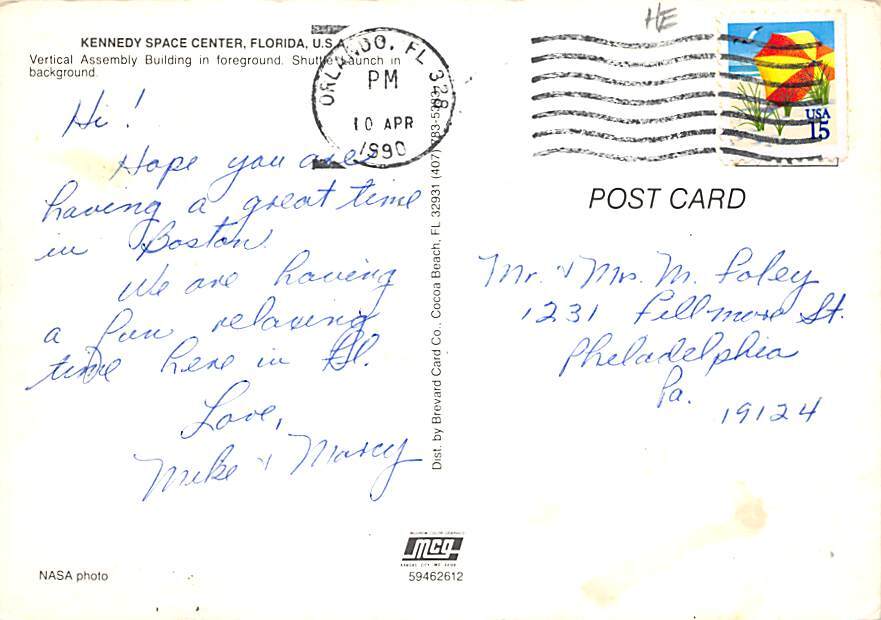 KENNEDY SPACE CENTER, FLORIDA, U.S.A.
Vertical Assembly Building in foreground. Shuttle launch in
background.
Hi!
Hope you are
having a great time
in Boston.
We are having
a fun relaxing
time here in Fl.
Love,
Mike & Marcy
NASA photo
ORLANDO, FL 328
PM
10 APR
1990
Dist. by Brevard Card Co., Cocoa Beach, FL 32931 (407) 783-5383
mcg
59462612
HE
USA
15
POST CARD
Mr. & Mrs. M. Foley
1231 Fillmore St.
Philadelphia
Pa.
19124